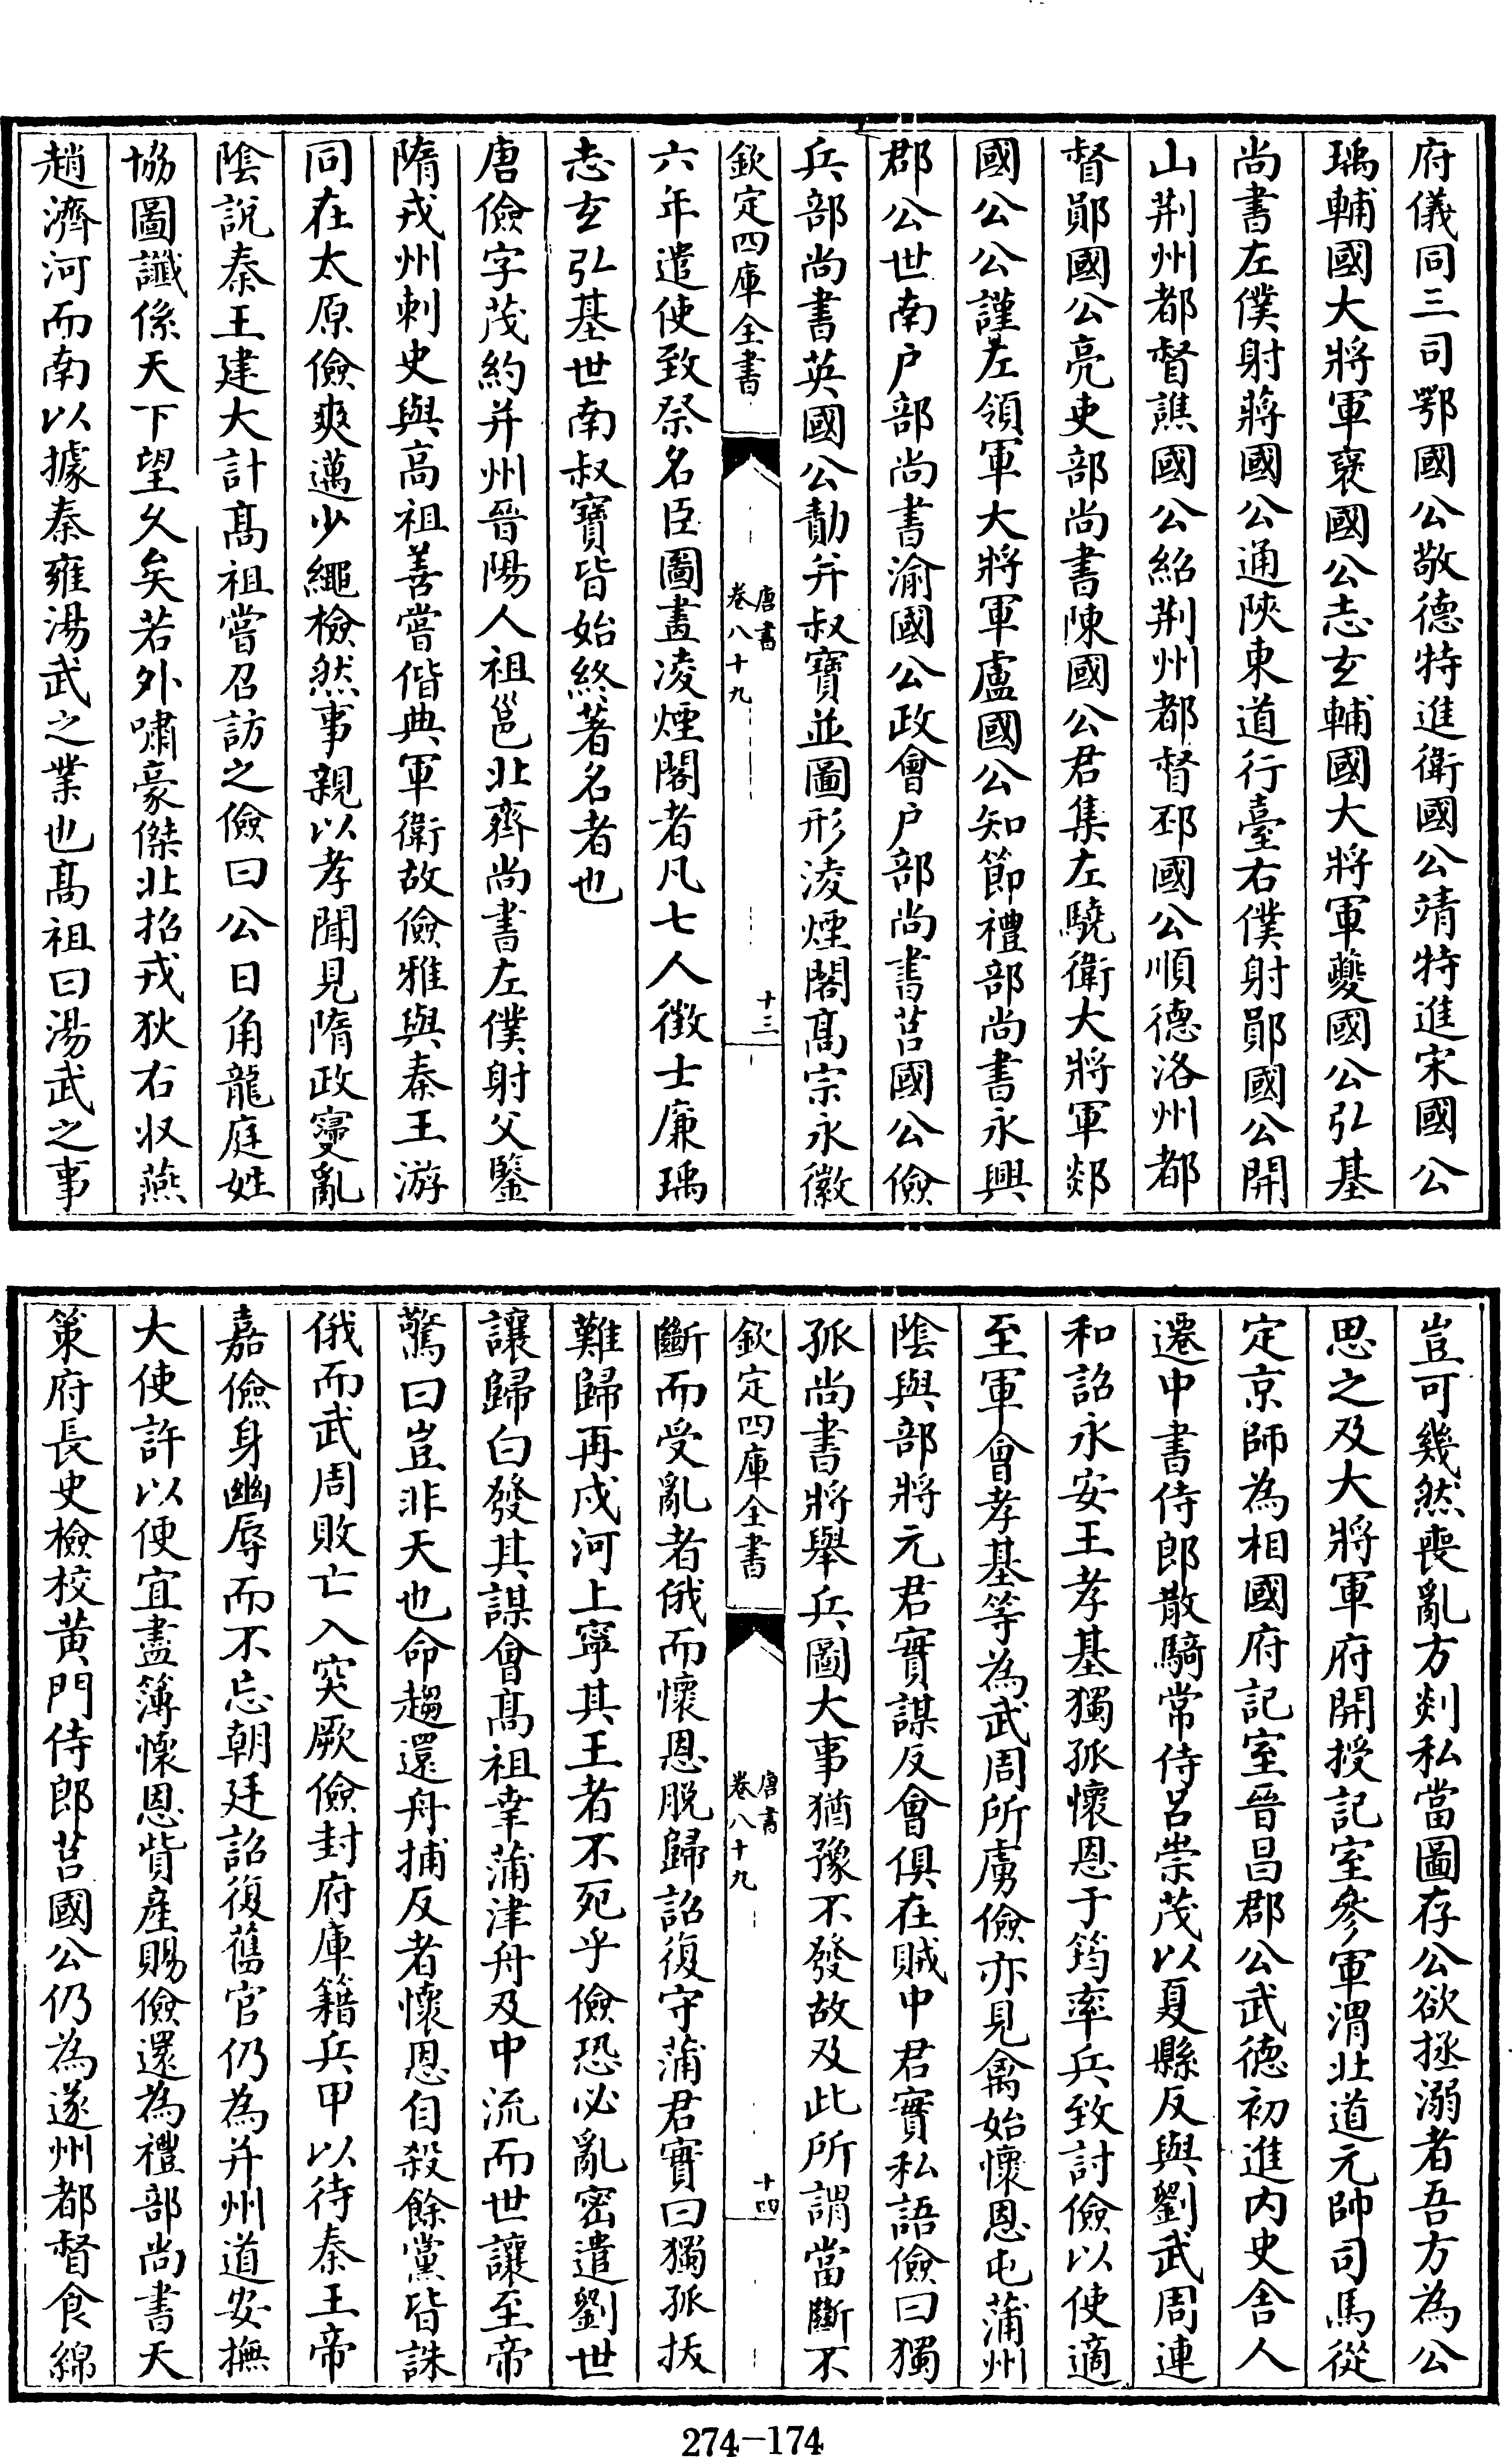 府儀同三司鄂國公敬德特進衛國公靖特進宋國公
瑀輔國大將軍襃國公志玄輔國大將軍夔國公弘基
尚書左僕射蔣國公通陝東道行臺右僕射鄖國公開
山荆州都督譙國公紹荆州都督邳國公順德洛州都
督鄖國公亮吏部尚書陳國公君集左驍衛大將軍郯
國公公謹左領軍大將軍盧國公知節禮部尚書永興
郡公世南戶部尚書渝國公政會戶部尚書莒國公儉
兵部尚書英國公勣并叔寶並圖形淩煙閣髙宗永徽
欽定四庫全書
唐書
卷八十九
十三
六年遣使致祭名臣圖畫凌煙閣者凡七人徵士廉瑀
志玄弘基世南叔寶皆始終著名者也
唐儉字茂約并州晉陽人祖邕北齊尚書左僕射父鑒
隋戎州刺史與高祖善嘗偕典軍衛故儉雅與秦王游
同在太原儉爽邁少繩檢然事親以孝聞見隋政寖亂
陰說秦王建大計髙祖嘗召訪之儉曰公日角龍庭姓
協圖讖係天下望久矣若外嘯豪傑北招戎狄右收燕
趙濟河而南以據秦雍湯武之業也髙祖曰湯武之事
豈可幾然喪亂方剡私當圖存公欲拯溺者吾方為公
思之及大將軍府開授記室參軍渭北道元帥司馬從
定京師為相國府記室晉昌郡公武德初進內史舍人
遷中書侍郎散騎常侍呂崇茂以夏縣反與劉武周連
和詔永安王孝基獨孤懷恩于筠率兵致討儉以使適
至軍會孝基等為武周所虜儉亦見禽始懷恩屯蒲州
陰與部將元君實謀反會俱在賊中君實私語儉曰獨
孤尚書將舉兵圖大事猶豫不發故及此所謂當斷不
欽定四庫全書
唐書
卷八十九
十四
斷而受亂者俄而懷恩脫歸詔復守蒲君實曰獨孤拔
難歸再戍河上寧其王者不死乎儉恐必亂密遣劉世
讓歸白發其謀會髙祖幸蒲津舟及中流而世讓至帝
驚曰豈非天也命趨還舟捕反者懷恩自殺餘黨皆誅
俄而武周敗亡入突厥儉封府庫籍兵甲以待秦王帝
嘉儉身幽辱而不忘朝廷詔復舊官仍為并州道安撫
大使許以便宜盡簿懷恩貲產賜儉還為禮部尚書天
策府長史檢校黃門侍郎莒國公仍為遂州都督食綿
274-174